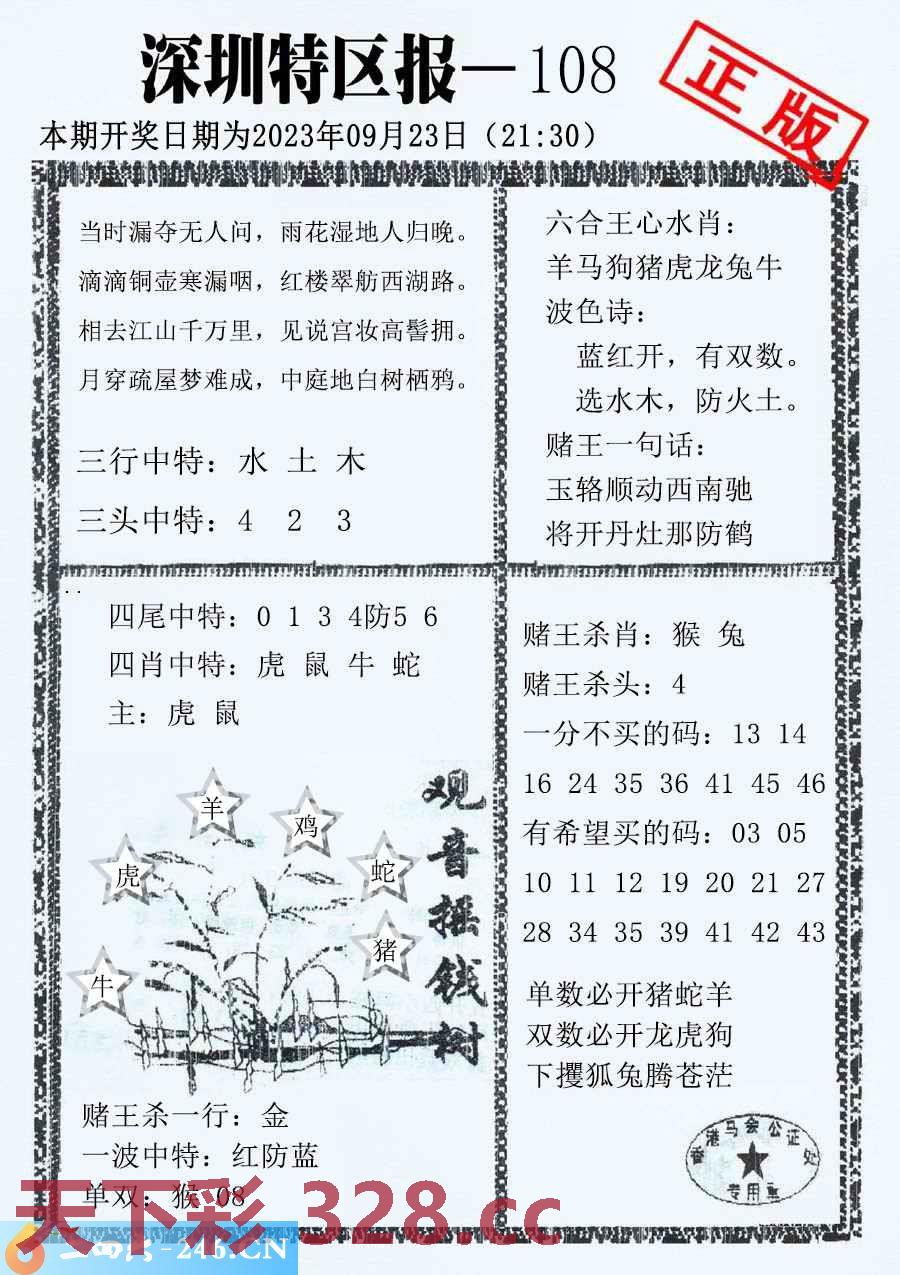 深圳特区报—108
正版
本期开奖日期为2023年09月23日（21:30）
当时漏夺无人问，雨花湿地人归晚。
滴滴铜壶寒漏咽，红楼翠舫西湖路。
相去江山千万里，见说宫妆高髻拥。
月穿疏屋梦难成，中庭地白树栖鸦。
三行中特：水 土 木
三头中特：4 2 3
六合王心水肖：
羊马狗猪虎龙兔牛
波色诗：
蓝红开，有双数。
选水木，防火土。
赌王一句话：
玉辂顺动西南驰
将开丹灶那防鹤
四尾中特：0 1 3 4防5 6
四肖中特：虎 鼠 牛 蛇
主：虎 鼠
羊
鸡
虎
蛇
猪
牛
观音摇钱树
赌王杀一行：金
一波中特：红防蓝
单双：猴 08
赌王杀肖：猴 兔
赌王杀头：4
一分不买的码：13 14
16 24 35 36 41 45 46
有希望买的码：03 05
10 11 12 19 20 21 27
28 34 35 39 41 42 43
单数必开猪蛇羊
双数必开龙虎狗
下攫狐兔腾苍茫
香港马会公证处
专用
天下彩 328.cc
-246.CN